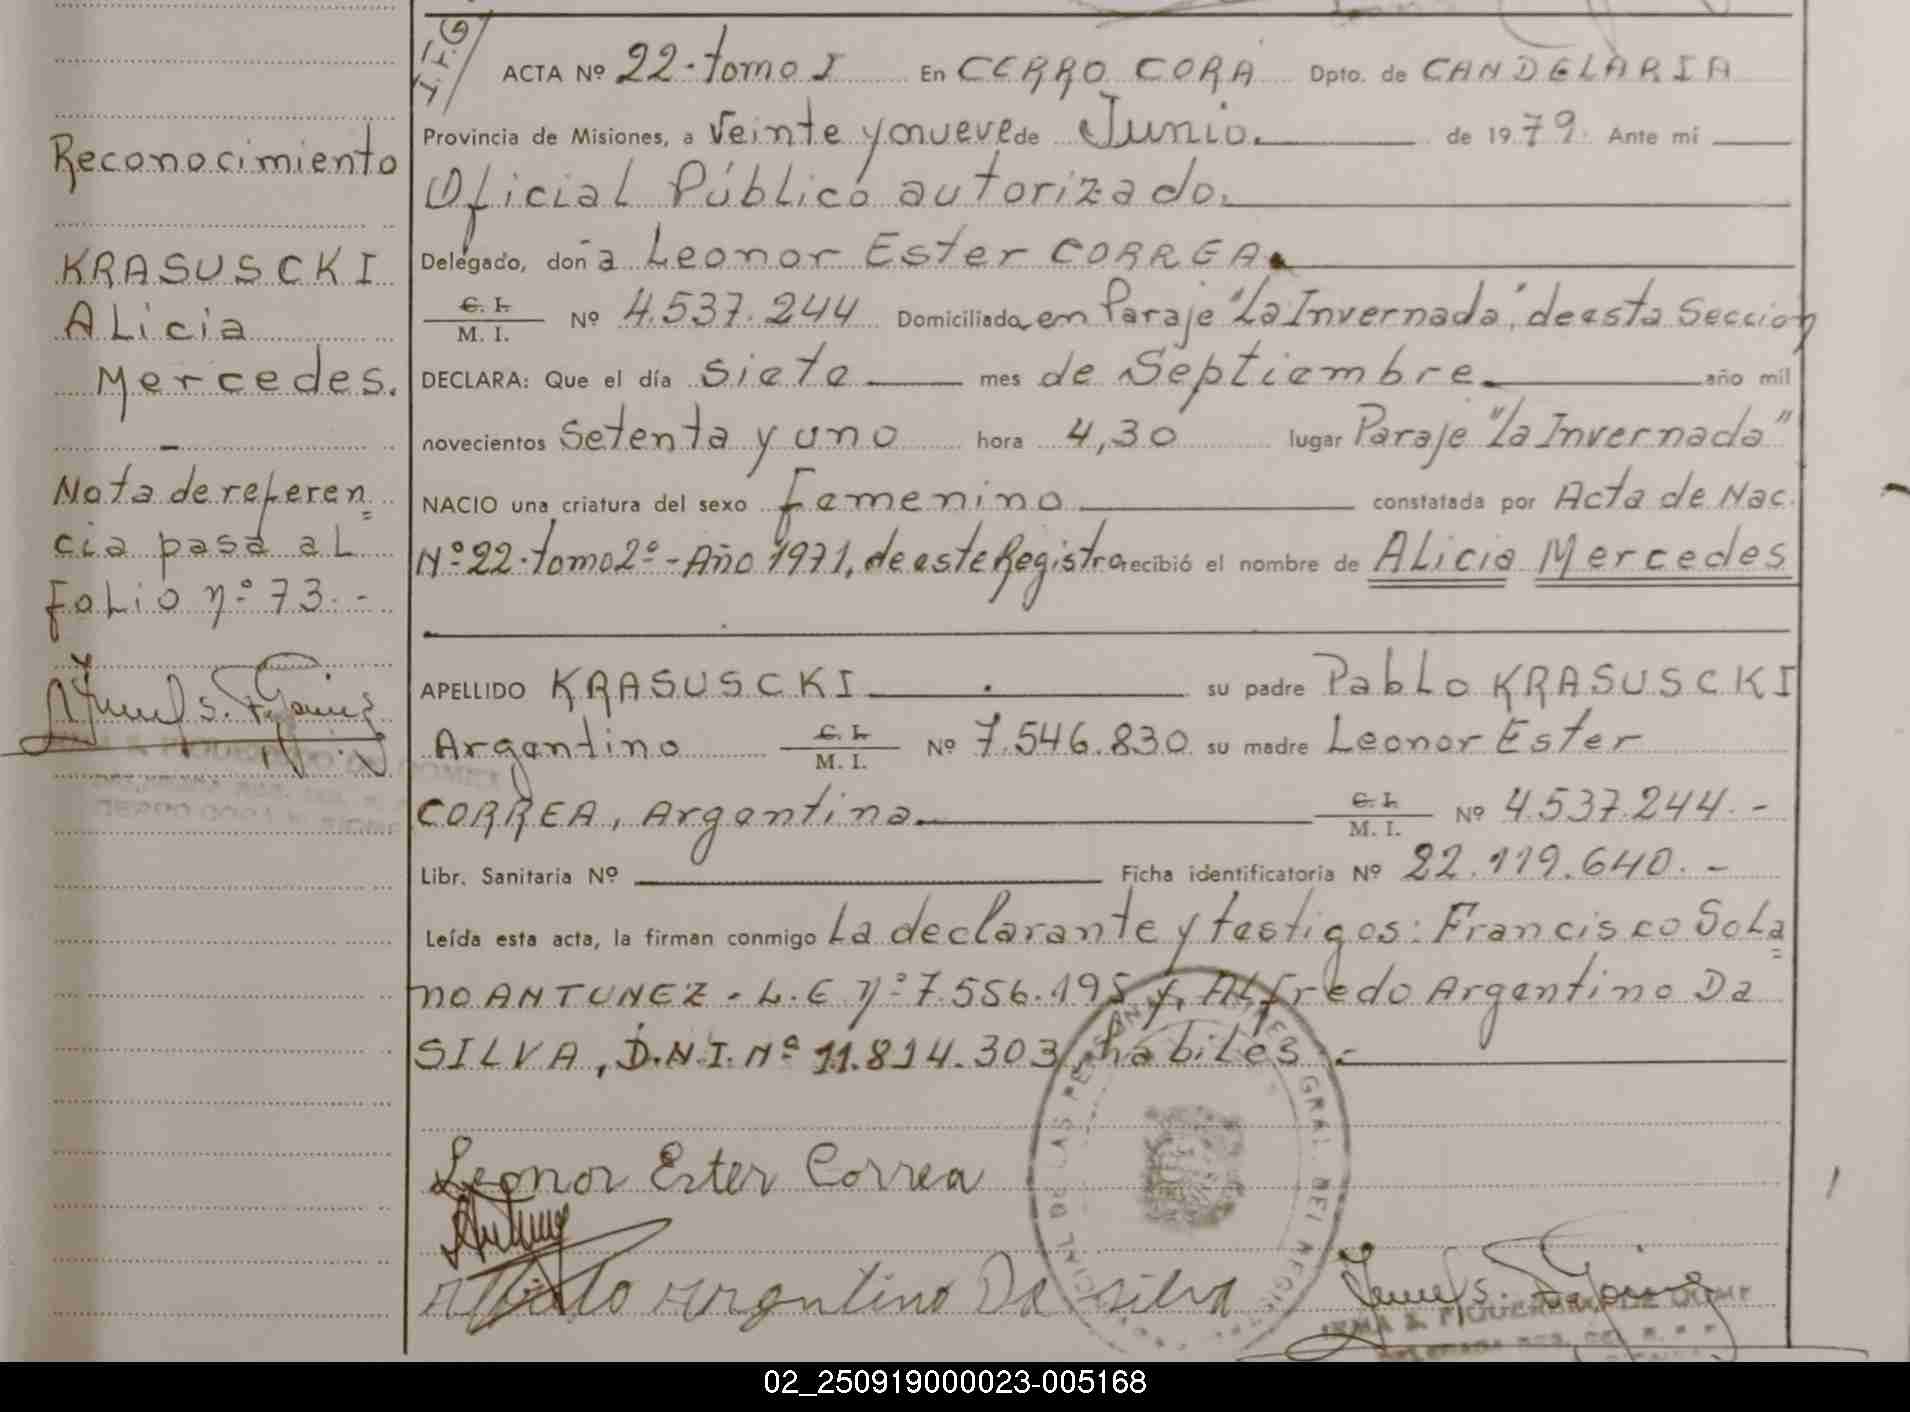 Reconocimiento
KRASUSCKI
ALicia
Mercedes.
Nota de referen
cia pasa al
Folio nº 73.-
ACTA Nº 22-tomo I En CERRO CORA Dpto. de CANDELARIA
Provincia de Misiones, a Veinte y nueve de Junio. de 1979. Ante mi
Oficial Público autorizado.
Delegado, doña Leonor Ester CORREA.
C. I. / M. I. Nº 4.537.244 Domiciliada en Paraje "La Invernada", de esta Sección
DECLARA: Que el día siete mes de Septiembre año mil
novecientos Setenta y uno hora 4,30 lugar Paraje "La Invernada"
NACIO una criatura del sexo femenino constatada por Acta de Nac.
Nº 22-tomo 2º-Año 1971, de este Registro recibió el nombre de ALicia Mercedes
APELLIDO KRASUSCKI su padre PabLo KRASUSCKI
Argentino C. I. / M. I. Nº 7.546.830 su madre Leonor Ester
CORREA, Argentina C. I. / M. I. Nº 4.537.244.-
Libr. Sanitaria Nº Ficha identificatoria Nº 22.119.640.-
Leída esta acta, la firman conmigo La declarante y testigos: Francisco SoLa
no ANTUNEZ - L.E nº 7.556.195 y, ALfredo Argentino Da
SILVA, D.N.I. Nº 11.814.303, habiles.-
Leonor Ester Correa
Antunez
Argentino Da silva
GRAL. DEL REGIS
DE LAS PERSONAS
IRMA S. FIGUEREDO DE GOMEZ
02_250919000023-005168